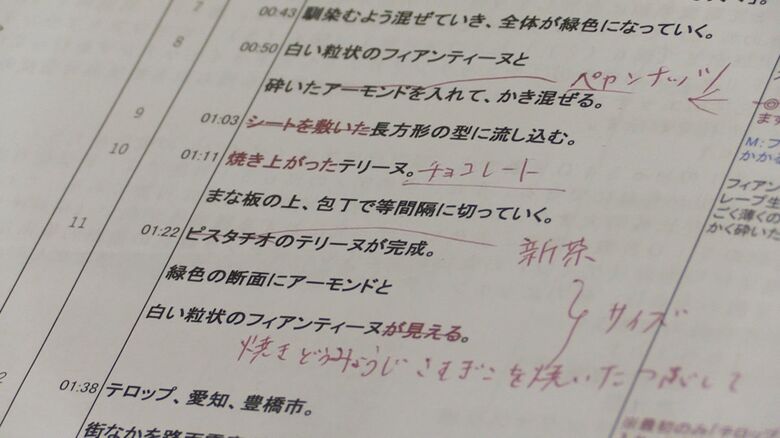 7
00:43 馴染むよう混ぜていき、全体が緑色になっていく。
8
00:50 白い粒状のフィアンティーヌと
砕いたアーモンドを入れて、かき混ぜる。
9
01:03 シートを敷いた長方形の型に流し込む。
10
01:11 焼き上がったテリーヌ。チョコレート
まな板の上、包丁で等間隔に切っていく。
11
01:22 ピスタチオのテリーヌが完成。
新茶
緑色の断面にアーモンドと
サイズ
白い粒状のフィアンティーヌが見える。
焼きどうみょうじ こむぎこを焼いた
01:38 テロップ、愛知、豊橋市。
街なかを路面電
ます
M:フ
かかる
フィアン
レープ生
ごく薄くの
かく砕いた
※最初のみ「テロップ